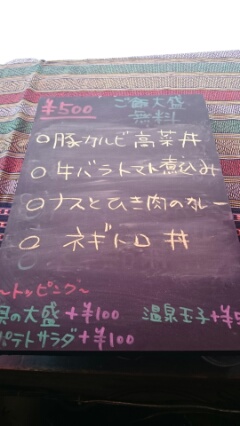 ¥500 ご飯大盛
無料
○豚カルビ高菜丼
○牛バラトマト煮込み
○ナスとひき肉のカレー
○ネギトロ丼
～トッピング～
の大盛+¥100 温泉玉子+¥5
ポテトサラダ+¥100